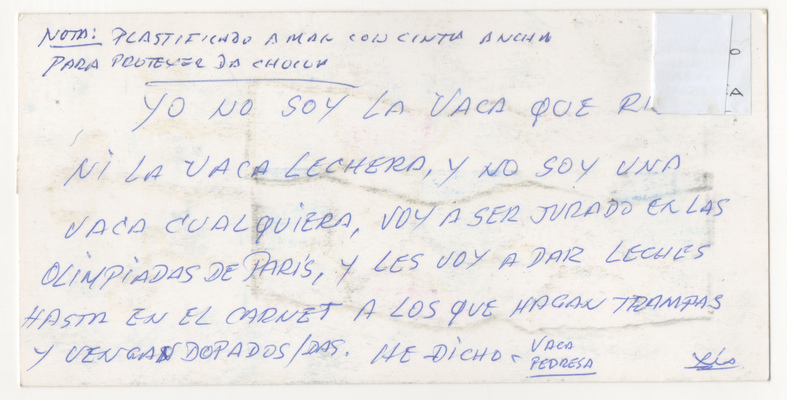 NOTA: PLASTIFICADO A MAN CON CINTA ANCHA
PARA PROTEGER DA CHOIVA
YO NO SOY LA VACA QUE RI
NI LA VACA LECHERA, Y NO SOY UNA
VACA CUALQUIERA, VOY A SER JURADO EN LAS
OLIMPIADAS DE PARÍS, Y LES VOY A DAR LECHES
HASTA EN EL CARNET A LOS QUE HAGAN TRAMPAS
Y VENGAN DOPADOS/DAS. HE DICHO - VACA
PEDRESA
O
A